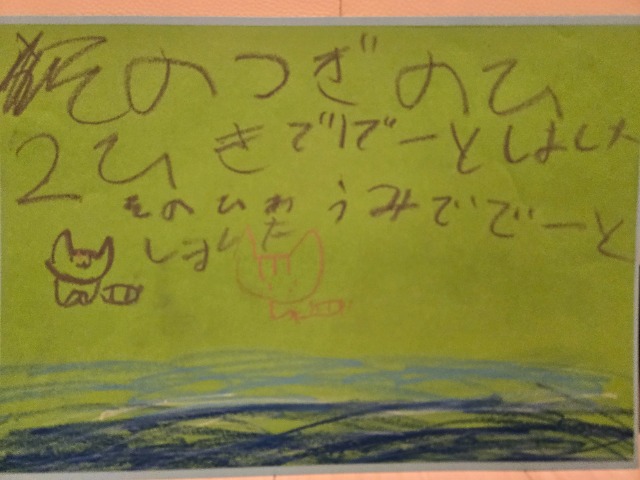 そのつぎのひ
2ひきででーとしました
そのひわうみででーと
しました